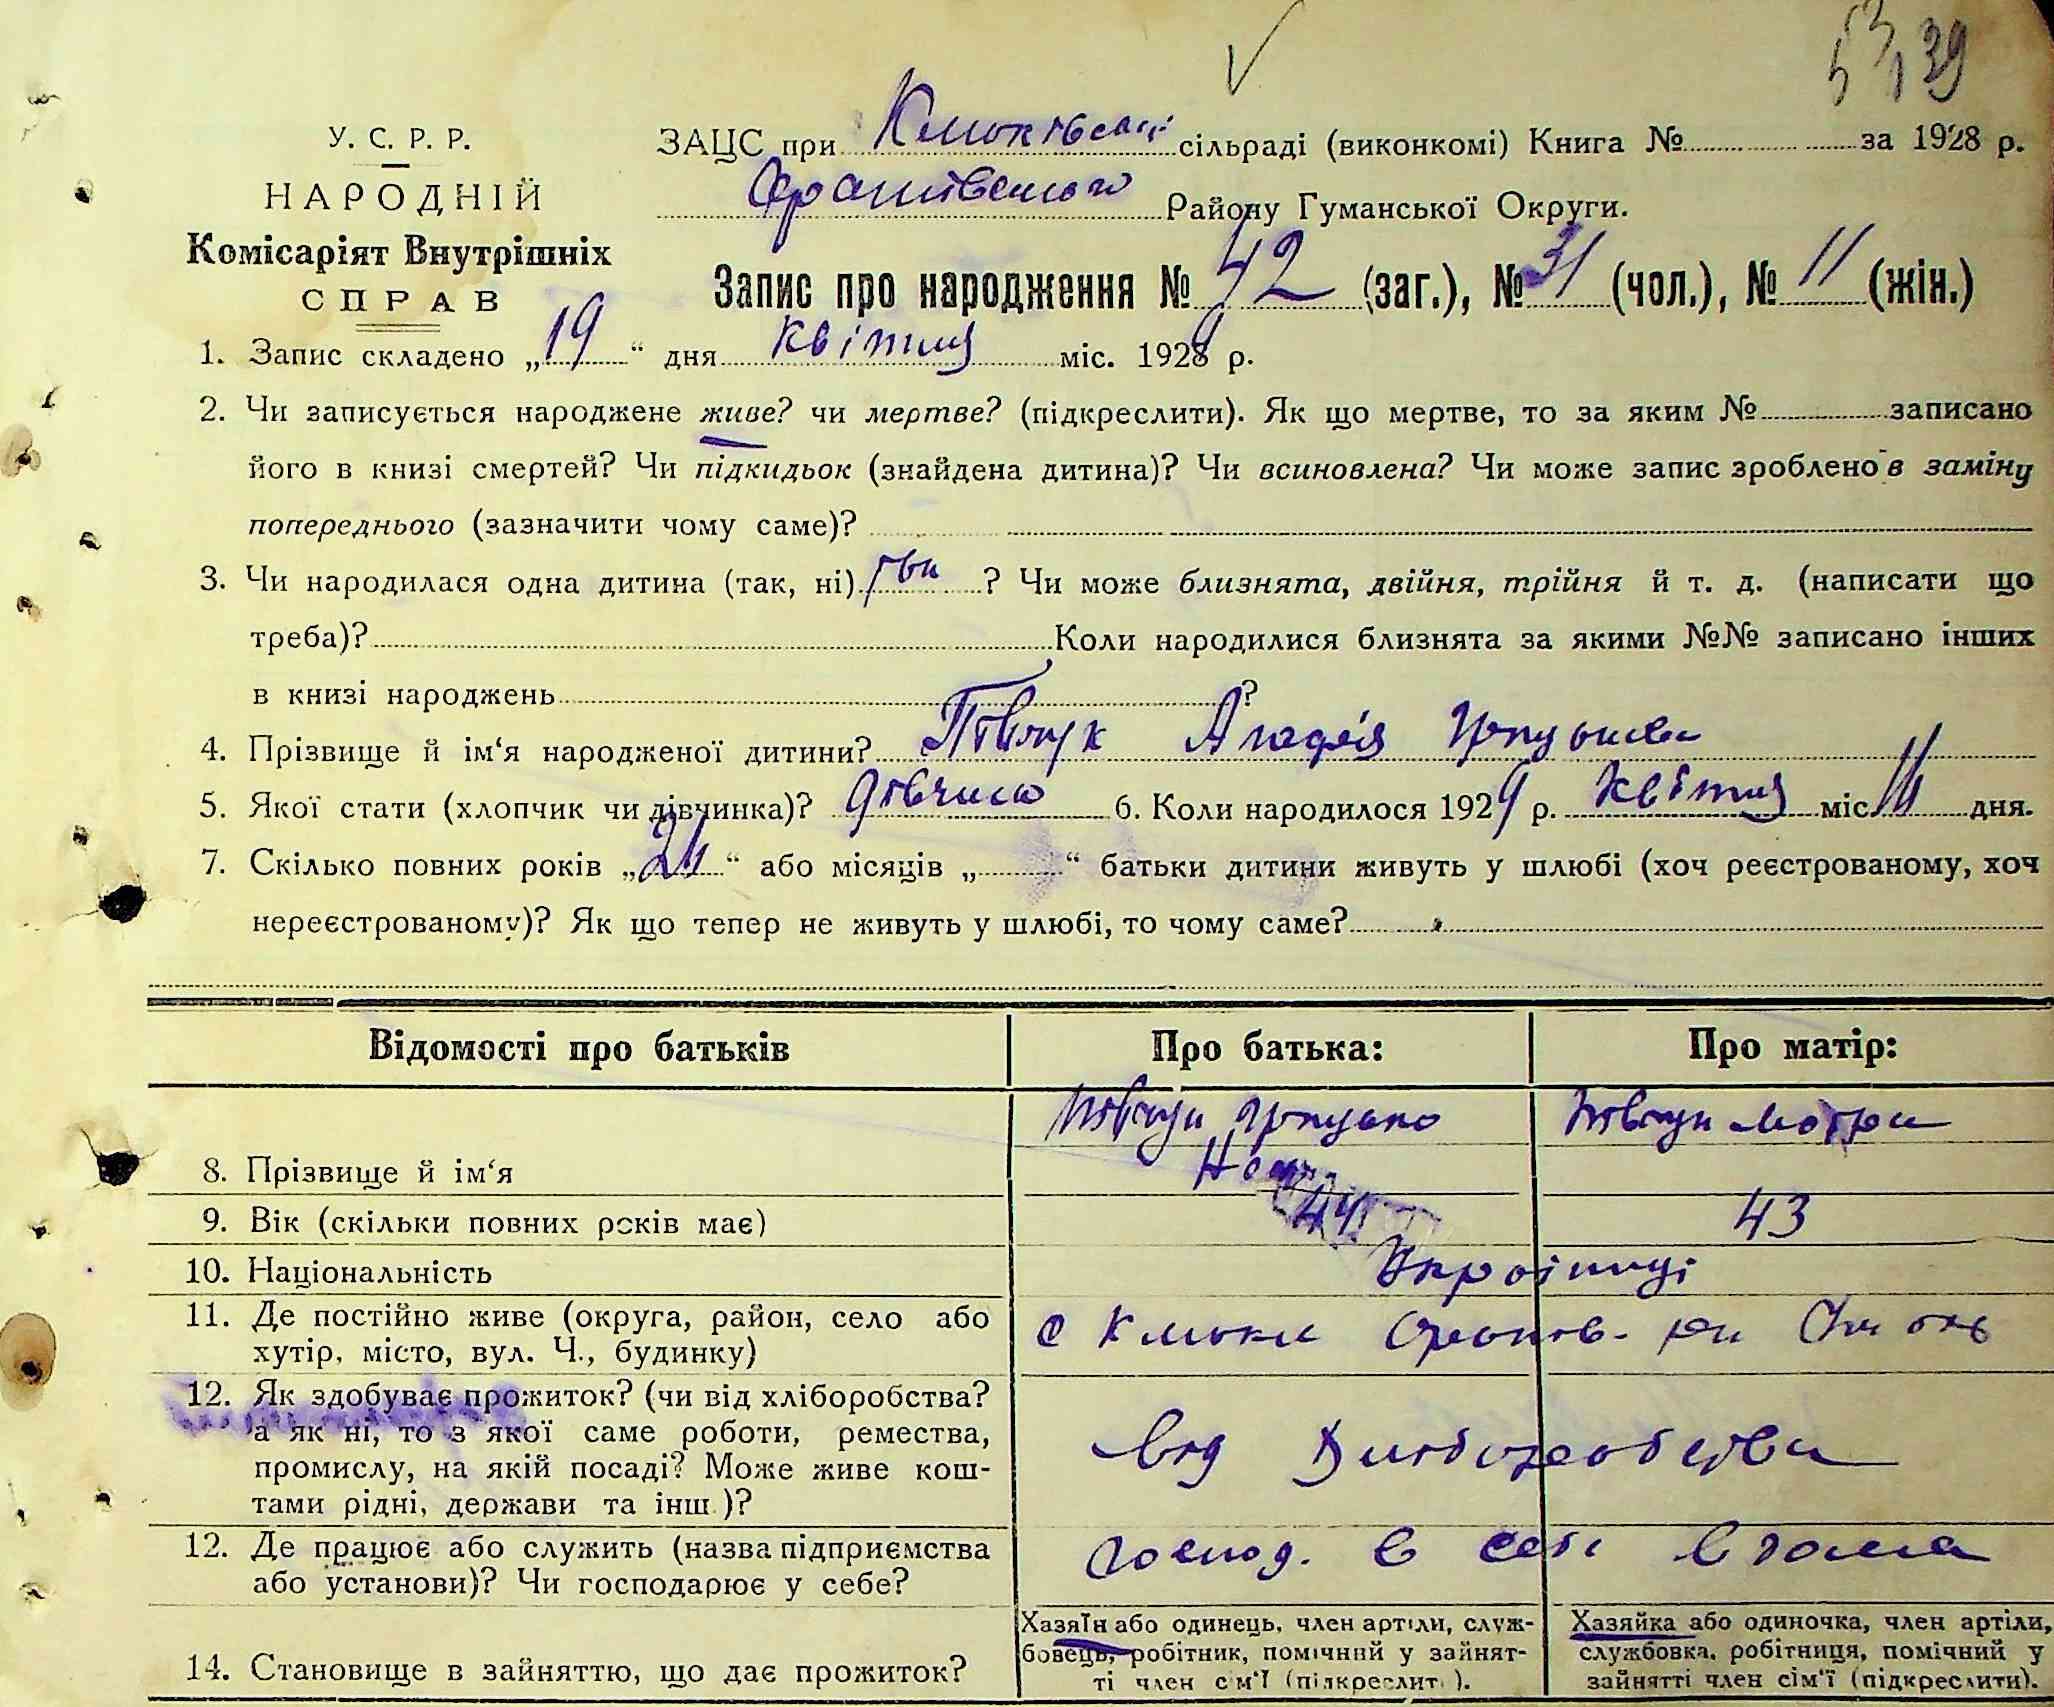 53 139
У. С. Р. Р.
НАРОДНІЙ
Комісаріят Внутрішніх
СПРАВ
ЗАЦС при сільраді (виконкомі) Книга № за 1928 р.
Району Гуманської Округи.
Запис про народження № 42 (заг.), № 31 (чол.), № 11 (жін.)
1. Запис складено „19“ дня квітня міс. 1929 р.
2. Чи записується народжене живе? чи мертве? (підкреслити). Як що мертве, то за яким № записано
його в книзі смертей? Чи підкидьок (знайдена дитина)? Чи всиновлена? Чи може запис зроблено в заміну
попереднього (зазначити чому саме)?
3. Чи народилася одна дитина (так, ні) ? Чи може близнята, двійня, трійня й т. д. (написати що
треба)? Коли народилися близнята за якими №№ записано інших
в книзі народжень ?
4. Прізвище й ім‘я народженої дитини? Агафія
5. Якої стати (хлопчик чи дівчинка)? 6. Коли народилося 1929 р. квітня міс. дня.
7. Скілько повних років „ “ або місяців „ “ батьки дитини живуть у шлюбі (хоч реєстрованому, хоч
нереєстрованому)? Як що тепер не живуть у шлюбі, то чому саме?
Відомості про батьків Про батька: Про матір:
8. Прізвище й ім‘я
9. Вік (скільки повних років має) 44 43
10. Національність Українці
11. Де постійно живе (округа, район, село або
хутір, місто, вул. Ч., будинку)
12. Як здобуває прожиток? (чи від хліборобства?
а як ні, то з якої саме роботи, ремества,
промислу, на якій посаді? Може живе кош-
тами рідні, держави та інш.)?
від Хліборобства
12. Де працює або служить (назва підприємства
або установи)? Чи господарює у себе?
господ. в себе вдома
14. Становище в зайняттю, що дає прожиток?
Хазяїн або одинець, член артіли, служ-
бовець, робітник, помічний у зайнят-
ті член сім‘ї (підкреслит.).
Хазяйка або одиночка, член артіли,
службовка, робітниця, помічний у
зайнятті член сім‘ї (підкреслити).